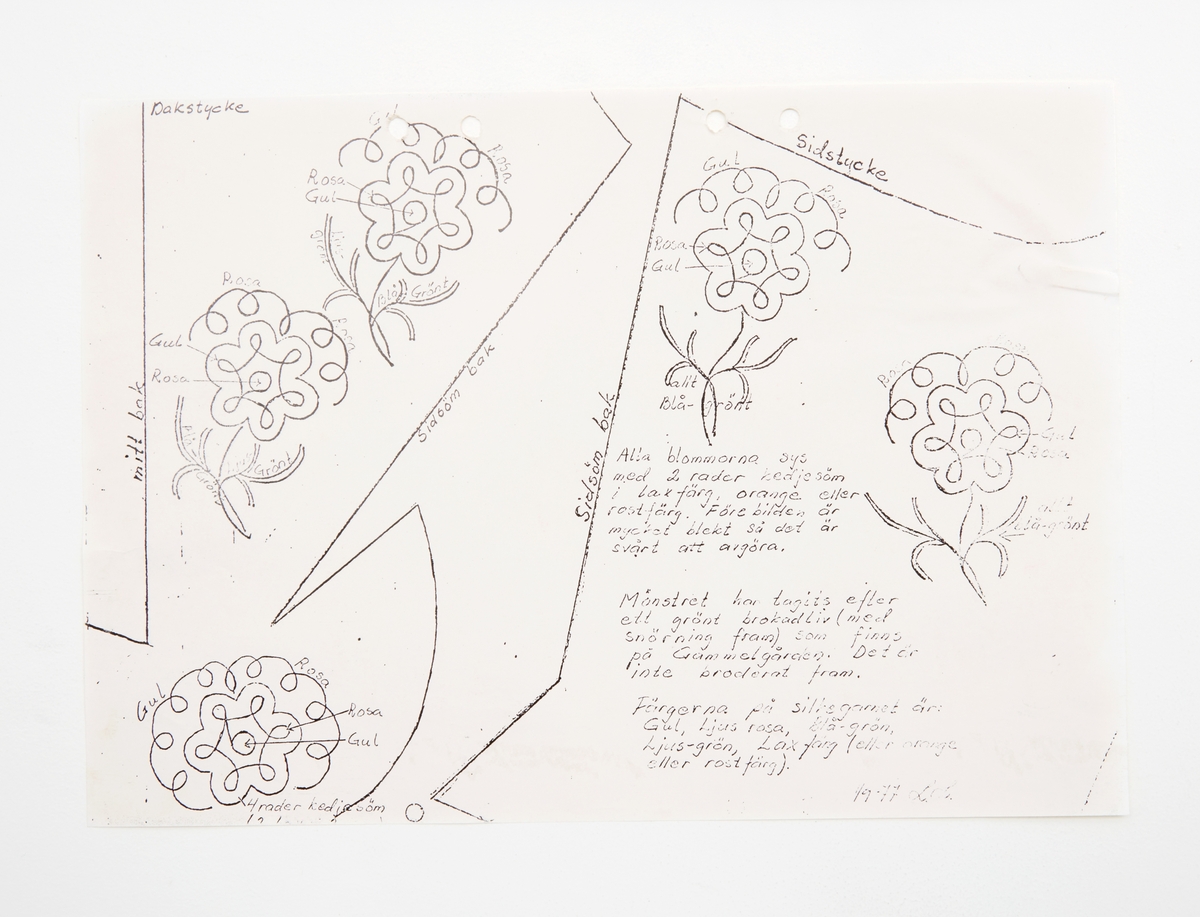 Bakstycke
Gul
Rosa
Rosa
Gul
Ljus
grönt
Blå-
Grönt
Rosa
Rosa
Gul
Rosa
Grönt
mitt bak
Sidsöm bak
Gul
Rosa
Rosa
Gul
4 rader kedjesöm
Sidstycke
Gul
Rosa
Rosa
Gul
allt
Blå-grönt
Sidsöm bak
Rosa
Gul
Rosa
allt
blå-grönt
Alla blommorna sys
med 2 rader kedjesöm
i laxfärg, orange eller
rostfärg. Förebilden är
mycket blekt så det är
svårt att avgöra.
Mönstret har tagits efter
ett grönt brokadliv (med
snörning fram) som finns
på Gammelgården. Det är
inte broderat fram.
Färgerna på silkegarnet är:
Gul, Ljus rosa, Blå-grön,
Ljus-grön, Laxfärg (eller orange
eller rostfärg).
1977